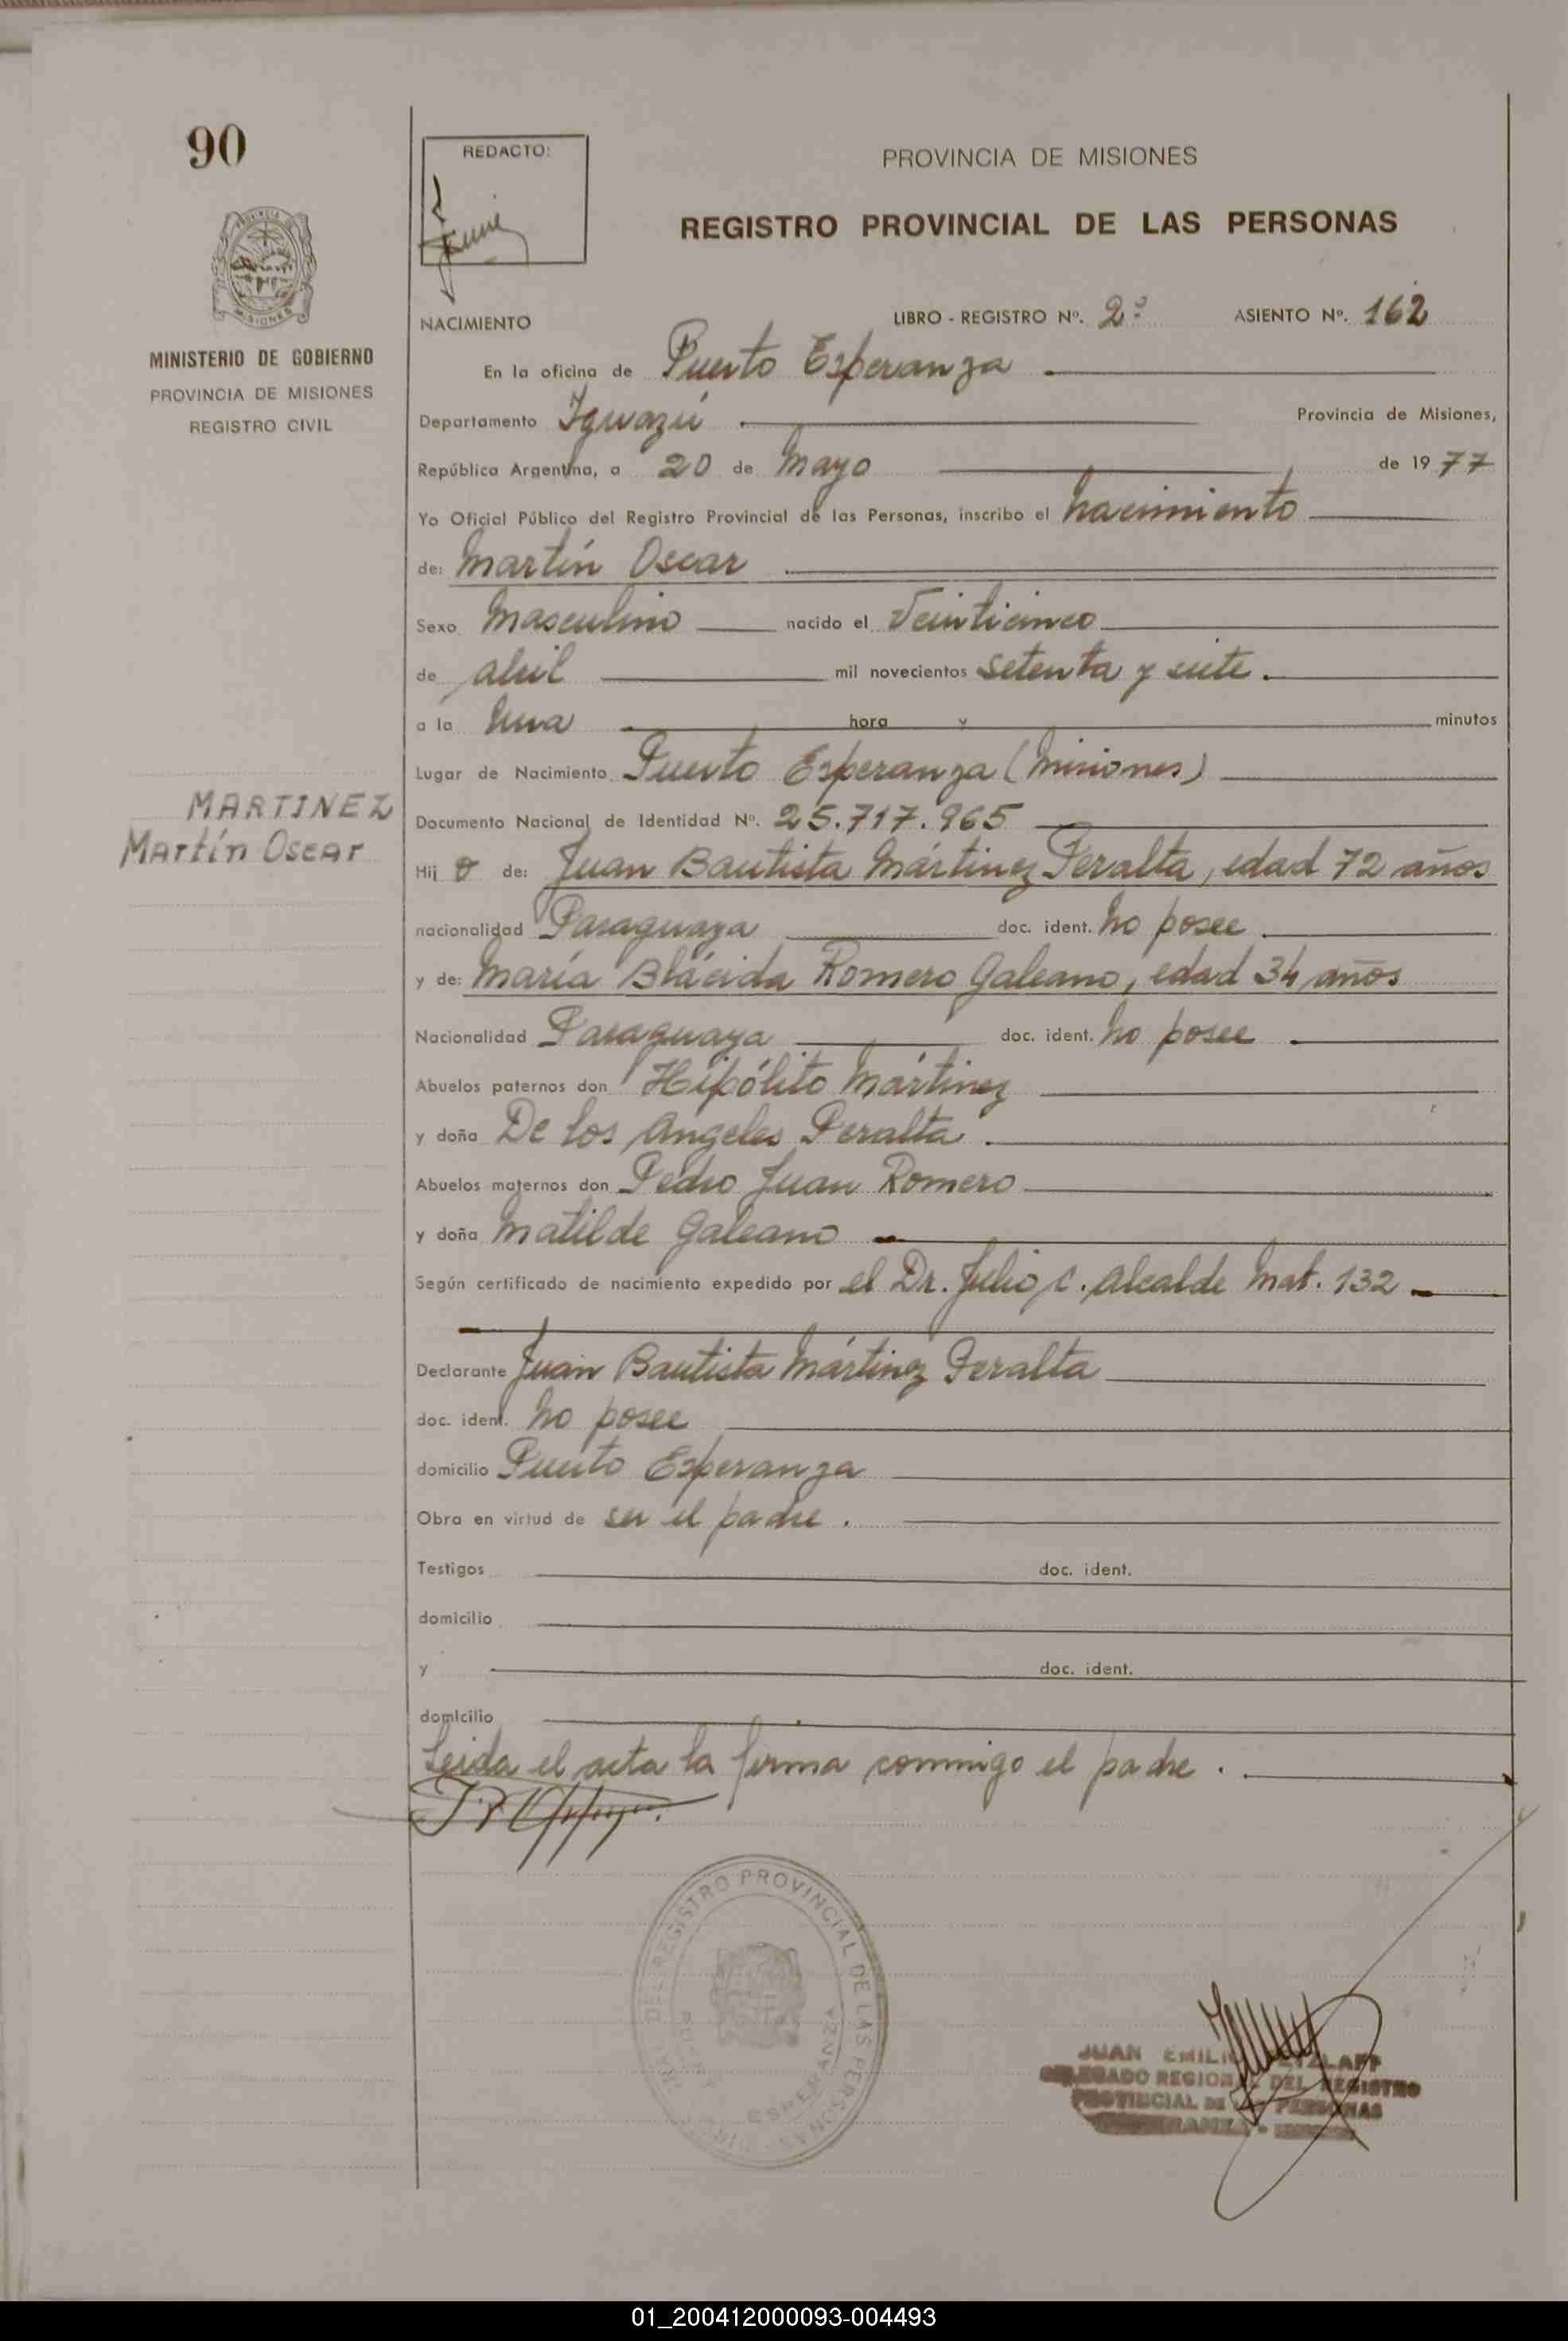 90
REDACTO:
PROVINCIA DE MISIONES
REGISTRO PROVINCIAL DE LAS PERSONAS
MISIONES
MINISTERIO DE GOBIERNO
PROVINCIA DE MISIONES
REGISTRO CIVIL
NACIMIENTO LIBRO - REGISTRO Nº. 2º ASIENTO Nº. 162
En la oficina de Puerto Esperanza
Departamento Iguazú Provincia de Misiones,
República Argentina, a 20 de Mayo de 1977
Yo Oficial Público del Registro Provincial de las Personas, inscribo el nacimiento
de: Martín Oscar
Sexo Masculino nacido el Veinticinco
de abril mil novecientos setenta y siete.
a la una hora y minutos
Lugar de Nacimiento Puerto Esperanza (Misiones)
MARTINEZ
Martín Oscar
Documento Nacional de Identidad Nº. 25.717.965
Hij o de: Juan Bautista Mártinez Peralta, edad 72 años
nacionalidad Paraguaya doc. ident. no posee
y de: María Blácida Romero Galeano, edad 34 años
Nacionalidad Paraguaya doc. ident. no posee
Abuelos paternos don Hipólito Mártinez
y doña De los Angeles Peralta.
Abuelos maternos don Pedro Juan Romero
y doña Matilde Galeano
Según certificado de nacimiento expedido por el Dr. Julio C. Alcalde Mat. 132
Declarante Juan Bautista Mártinez Peralta
doc. ident. no posee
domicilio Puerto Esperanza
Obra en virtud de ser el padre.
Testigos doc. ident.
domicilio
y doc. ident.
domicilio
Leida el acta la firma conmigo el padre.
REGISTRO PROVINCIAL DE LAS PERSONAS
ESPERANZA
JUAN EMILIO
DELEGADO REGIONAL DEL REGISTRO
PROVINCIAL DE LAS PERSONAS
01_200412000093-004493